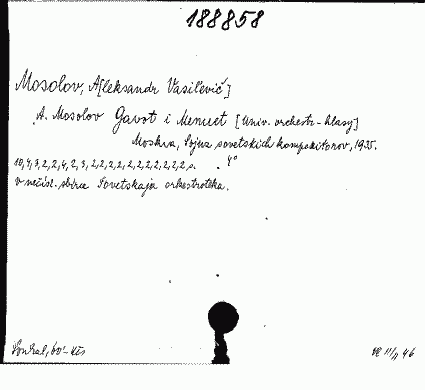 188858
Mosolov, A[leksandr Vasil'evič]
A. Mosolov Gavot i Menuet [Univ. orchestr-hlasy]
Moskva, Sojuz sovetskich kompozitorov, 1935.
10,4,3,2,2,4,2,3,2,2,2,2,2,2,2,2,2,2 s. 4°
v nečísl. sbírce Sovetskaja orkestroteka.
Souhal, 60'- Kčs
11/11 46